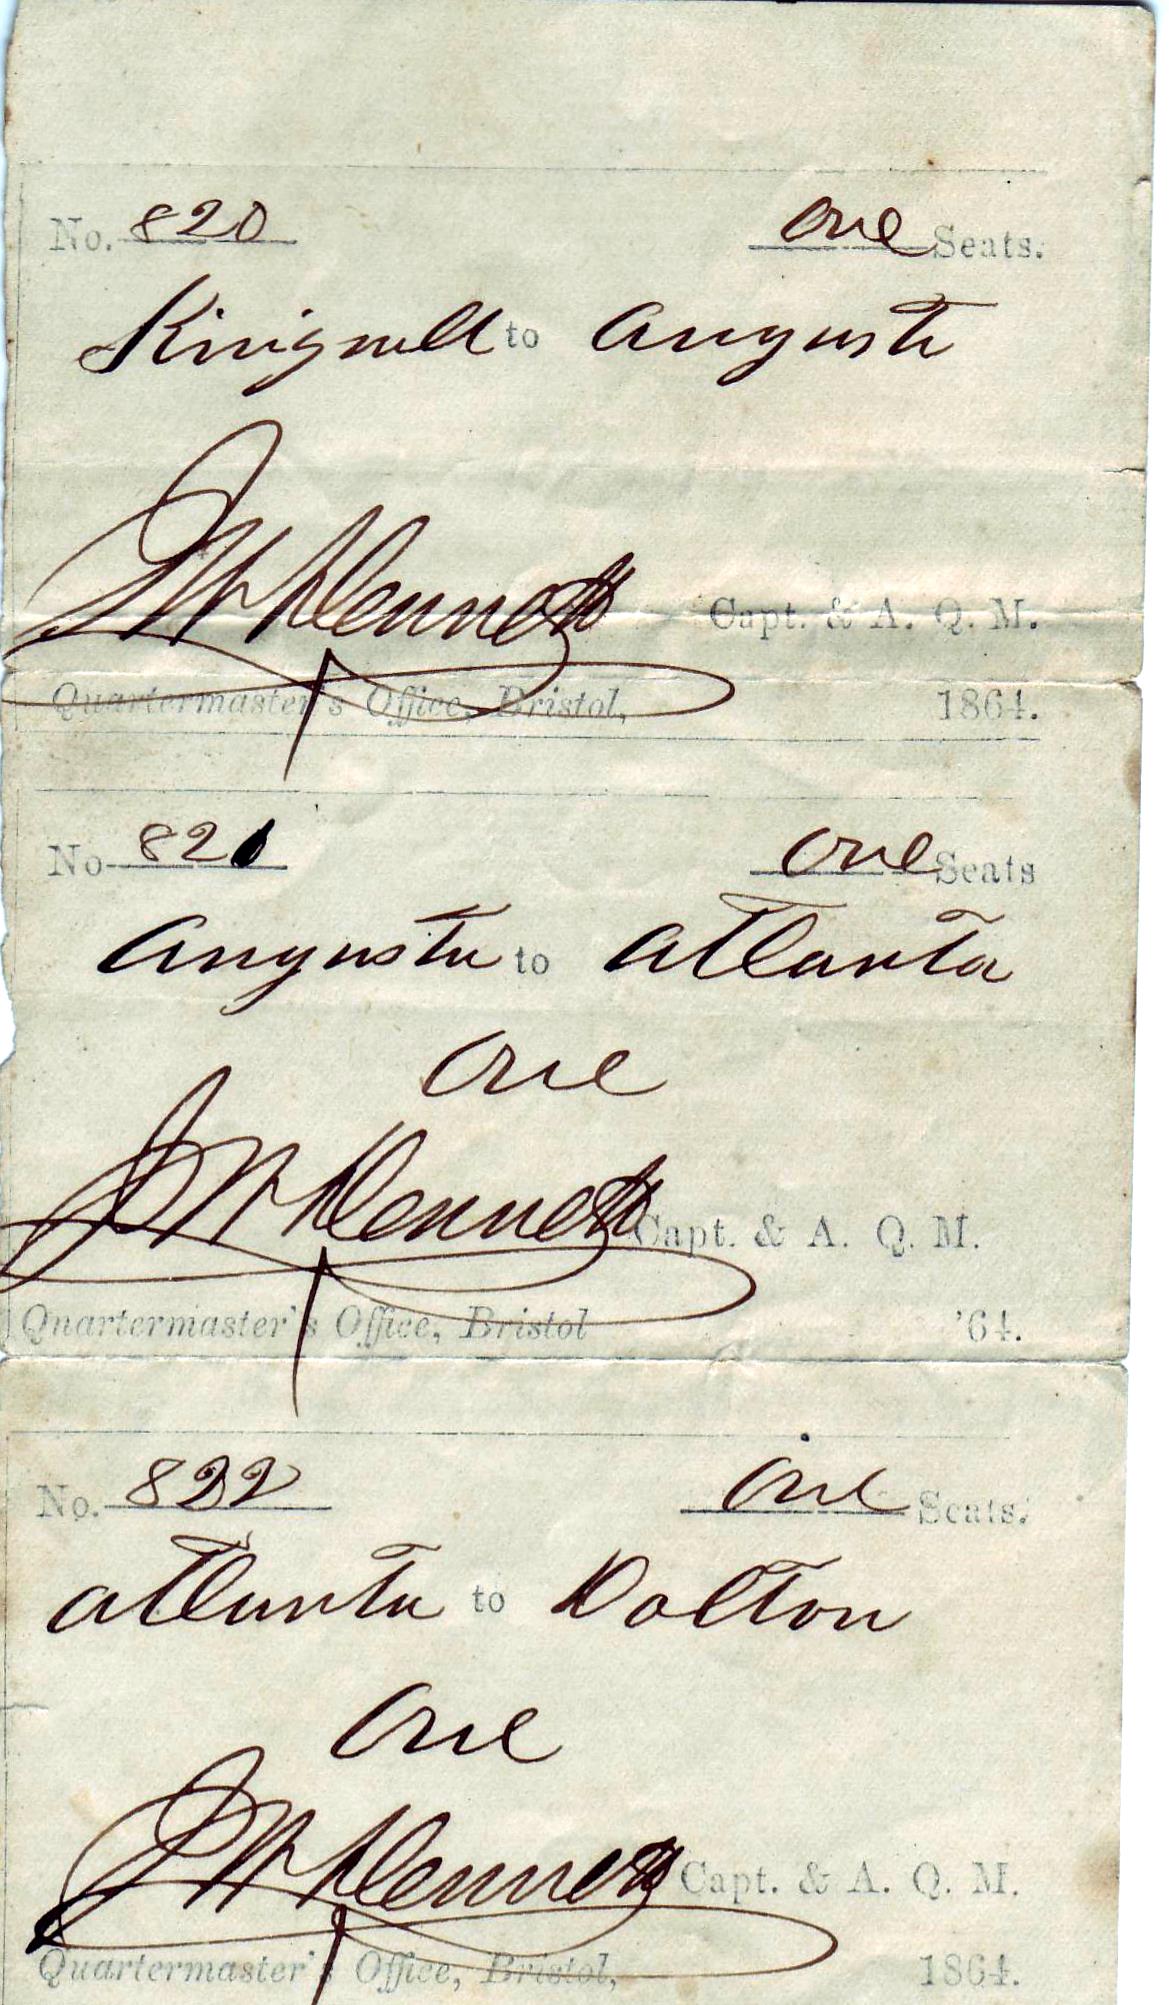 No. 820 One Seats.
Kingvill to Augusta
Capt. & A. Q. M.
Quartermaster's Office, Bristol, 1864.
No 821 One Seats
Augusta to Atlanta
One
Capt. & A. Q. M.
Quartermaster's Office, Bristol '64.
No. 822 One Seats.
Atlanta to Dalton
One
Capt. & A. Q. M.
Quartermaster's Office, Bristol, 1864.